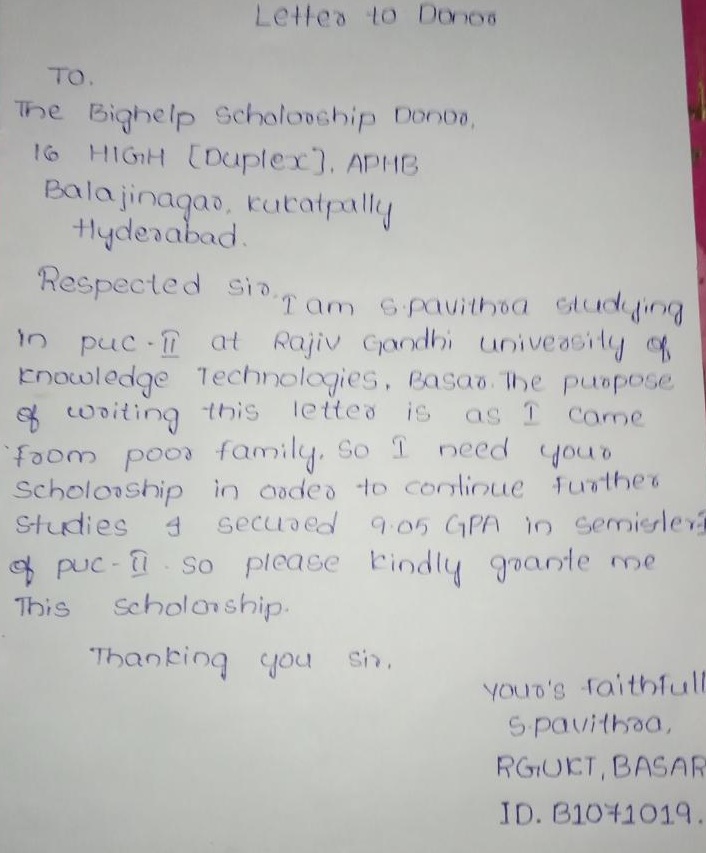 Letter to Donor
TO.
The Bighelp Scholorship Donor,
16 HIGH [Duplex], APHB
Balajinagar, kukatpally
Hyderabad.
Respected sir,
I am s.pavithra studying
in puc-II at Rajiv Gandhi university of
knowledge Technologies, Basar. The purpose
of writing this letter is as I came
from poor family, so I need your
Scholorship in order to continue further
Studies I secured 9.05 GPA in semister
of puc-II. so please kindly grante me
This scholorship.
Thanking you sir,
your's faithfull
S.pavithra,
RGUKT, BASAR
ID. B1071019.